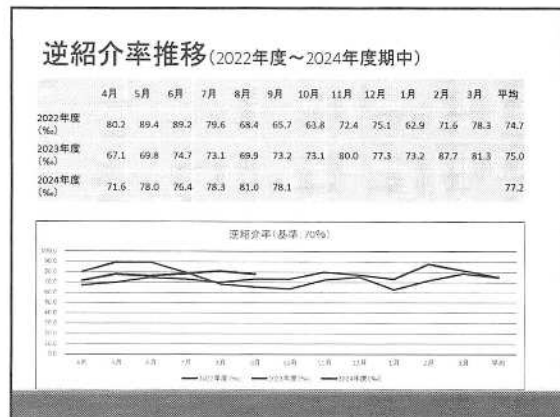 逆紹介率推移(2022年度～2024年度期中)
4月 5月 6月 7月 8月 9月 10月 11月 12月 1月 2月 3月 平均
2022年度
(‰) 80.2 89.4 89.2 79.6 68.4 65.7 63.8 72.4 75.1 62.9 71.6 78.3 74.7
2023年度
(‰) 67.1 69.8 74.7 73.1 69.9 73.2 73.1 80.0 77.3 73.2 87.7 81.3 75.0
2024年度
(‰) 71.6 78.0 76.4 78.3 81.0 78.1 77.2
逆紹介率(基準:70%)
100.0
90.0
80.0
70.0
60.0
50.0
40.0
30.0
20.0
10.0
0.0
4月 5月 6月 7月 8月 9月 10月 11月 12月 1月 2月 3月 平均
2022年度(‰) 2023年度(‰) 2024年度(‰)